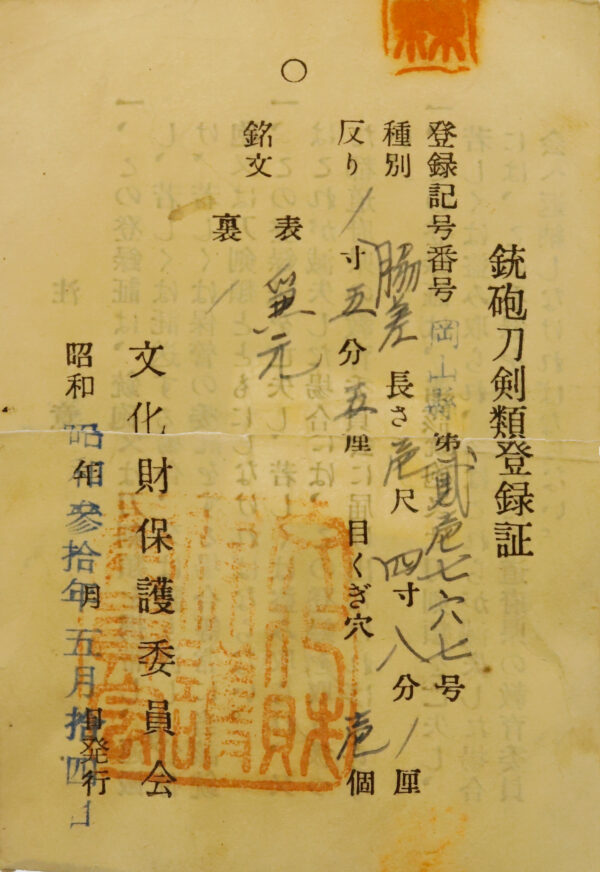 銃砲刀剣類登録証
登録記号番号 岡山縣 第貳壱七六七号
種別 脇差 長さ 壱尺四寸八分/厘
反り /寸五分五厘 目くぎ穴 壱個
銘文 表 兼元
裏 /
文化財保護委員会
昭和 年 月 日発行
昭和参拾年五月拾四日